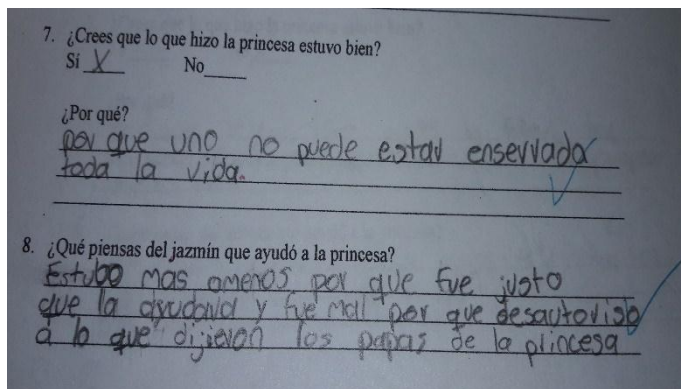 7. ¿Crees que lo que hizo la princesa estuvo bien?
Sí X No
¿Por qué?
por que uno no puede estar enserrada
toda la vida.
8. ¿Qué piensas del jazmín que ayudó a la princesa?
Estubo mas omenos por que fue justo
que la ayudara y fue mal por que desautorisó
a lo que dijieron los papas de la princesa